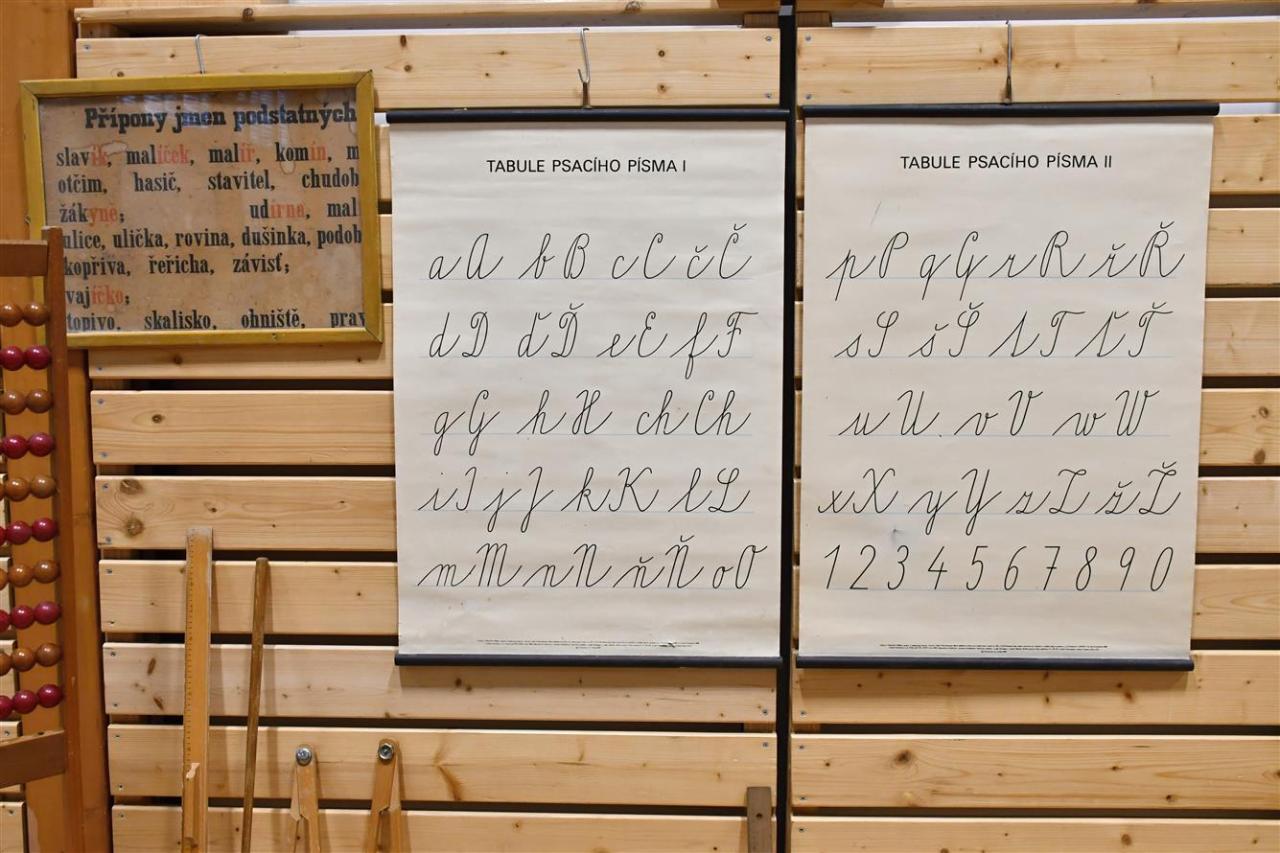 Přípony jmen podstatných
slavík, malíček, malíř, komín, m
otčim, hasič, stavitel, chudob
žákyně; udírna, mal
ulice, ulička, rovina, dušinka, podob
kopřiva, řeřicha, závisť;
vajíčko;
topivo, skalisko, ohniště, prav
TABULE PSACÍHO PÍSMA I
aA bB cC čČ
dD ďĎ eE fF
gG hH chCh
iI jJ kK lL
mM nN ňŇ oO
TABULE PSACÍHO PÍSMA II
pP qQ rR řŘ
sS šŠ tT ťŤ
uU vV wW
xX yY zZ žŽ
1 2 3 4 5 6 7 8 9 0